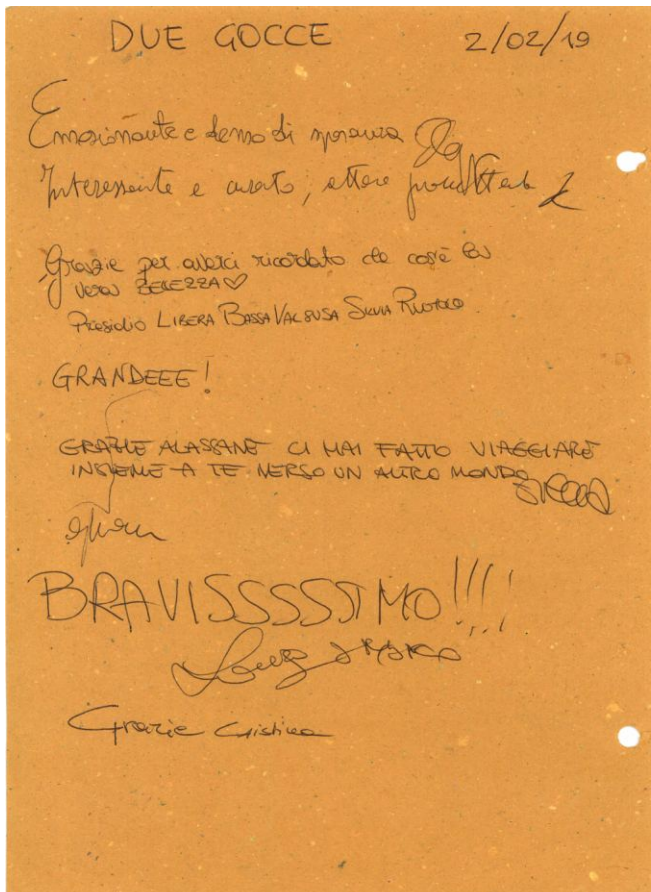 DUE GOCCE 2/02/19
Emozionante e denso di speranza
Interessente e curato, attore
Grazie per averci ricordato che cos'è la
vera BELEZZA♡
Presidio LIBERA BASSA VALSUSA SILVIA RUOTOLO
GRANDEEE!
GRAZIE ALASSANE CI HAI FATTO VIAGGIARE
INSIEME A TE VERSO UN ALTRO MONDO
BRAVISSSSSIMO!!!!
Grazie Cristina